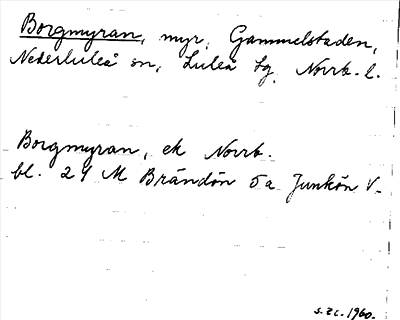 Borgmyran, myr, Gammelstaden,
Nederluleå sn, Luleå tg, Norrb. l.
Borgmyran, ek Norrb.
bl. 24 M Brändön 5a Junkön V.
S.Zc. 1960.